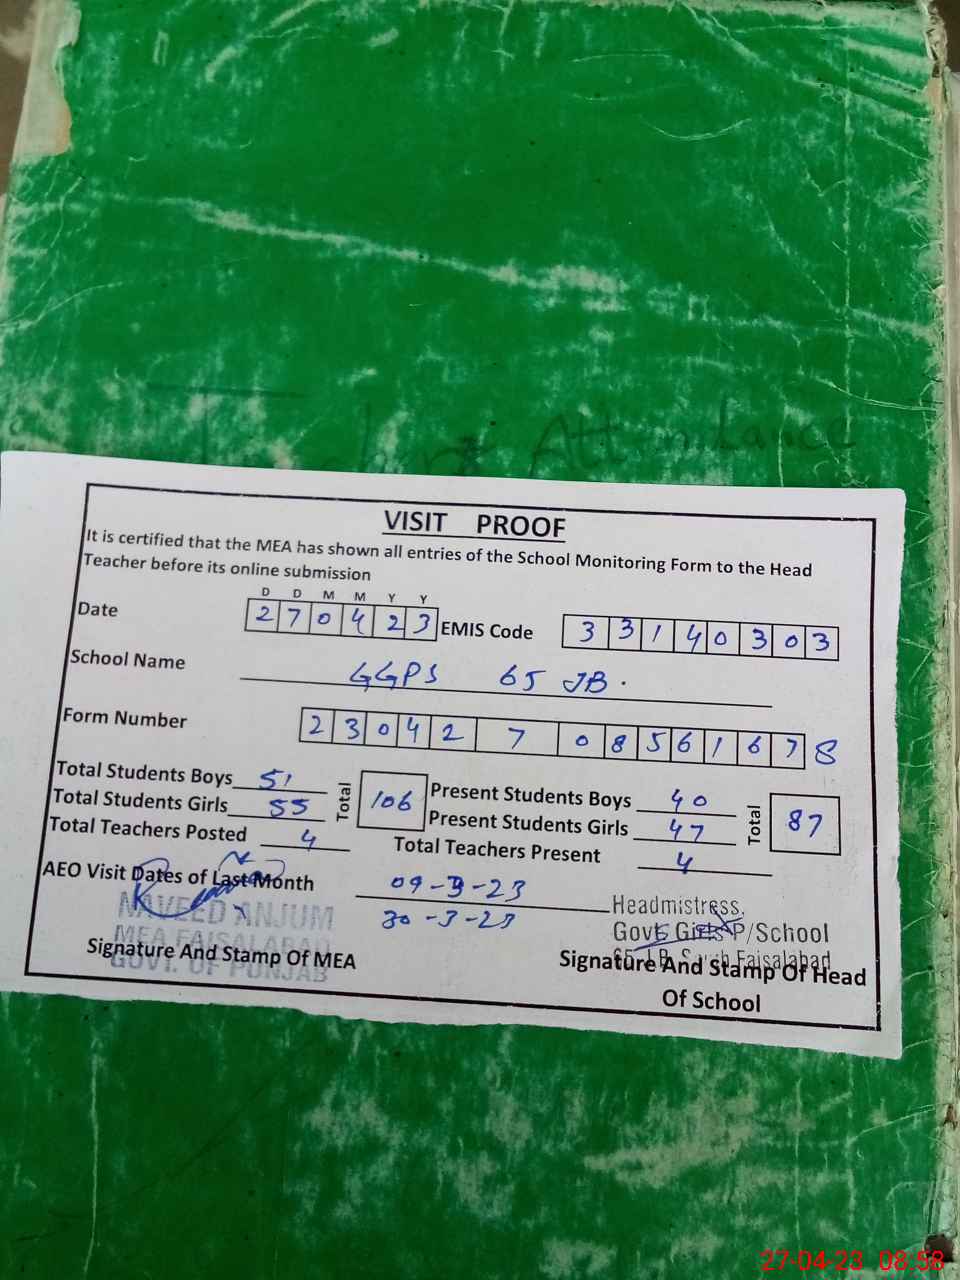 Attendance
VISIT PROOF
It is certified that the MEA has shown all entries of the School Monitoring Form to the Head
Teacher before its online submission
D D M M Y Y
Date 2 7 0 4 2 3 EMIS Code 3 3 1 4 0 3 0 3
School Name GGPS 65 JB.
Form Number 2 3 0 4 2 7 0 8 5 6 1 6 7 8
Total Students Boys 51 Total 106 Present Students Boys 40 Total 87
Total Students Girls 55 Present Students Girls 47
Total Teachers Posted 4 Total Teachers Present 4
AEO Visit Dates of Last Month 09-3-23
30-3-23
NAVEED ANJUM
MEA FAISALABAD
GOVT. OF PUNJAB
Signature And Stamp Of MEA
Headmistress,
Govt Girls P/School
65 J.B. Faisalabad
Signature And Stamp Of Head
Of School
27-04-23 08:58